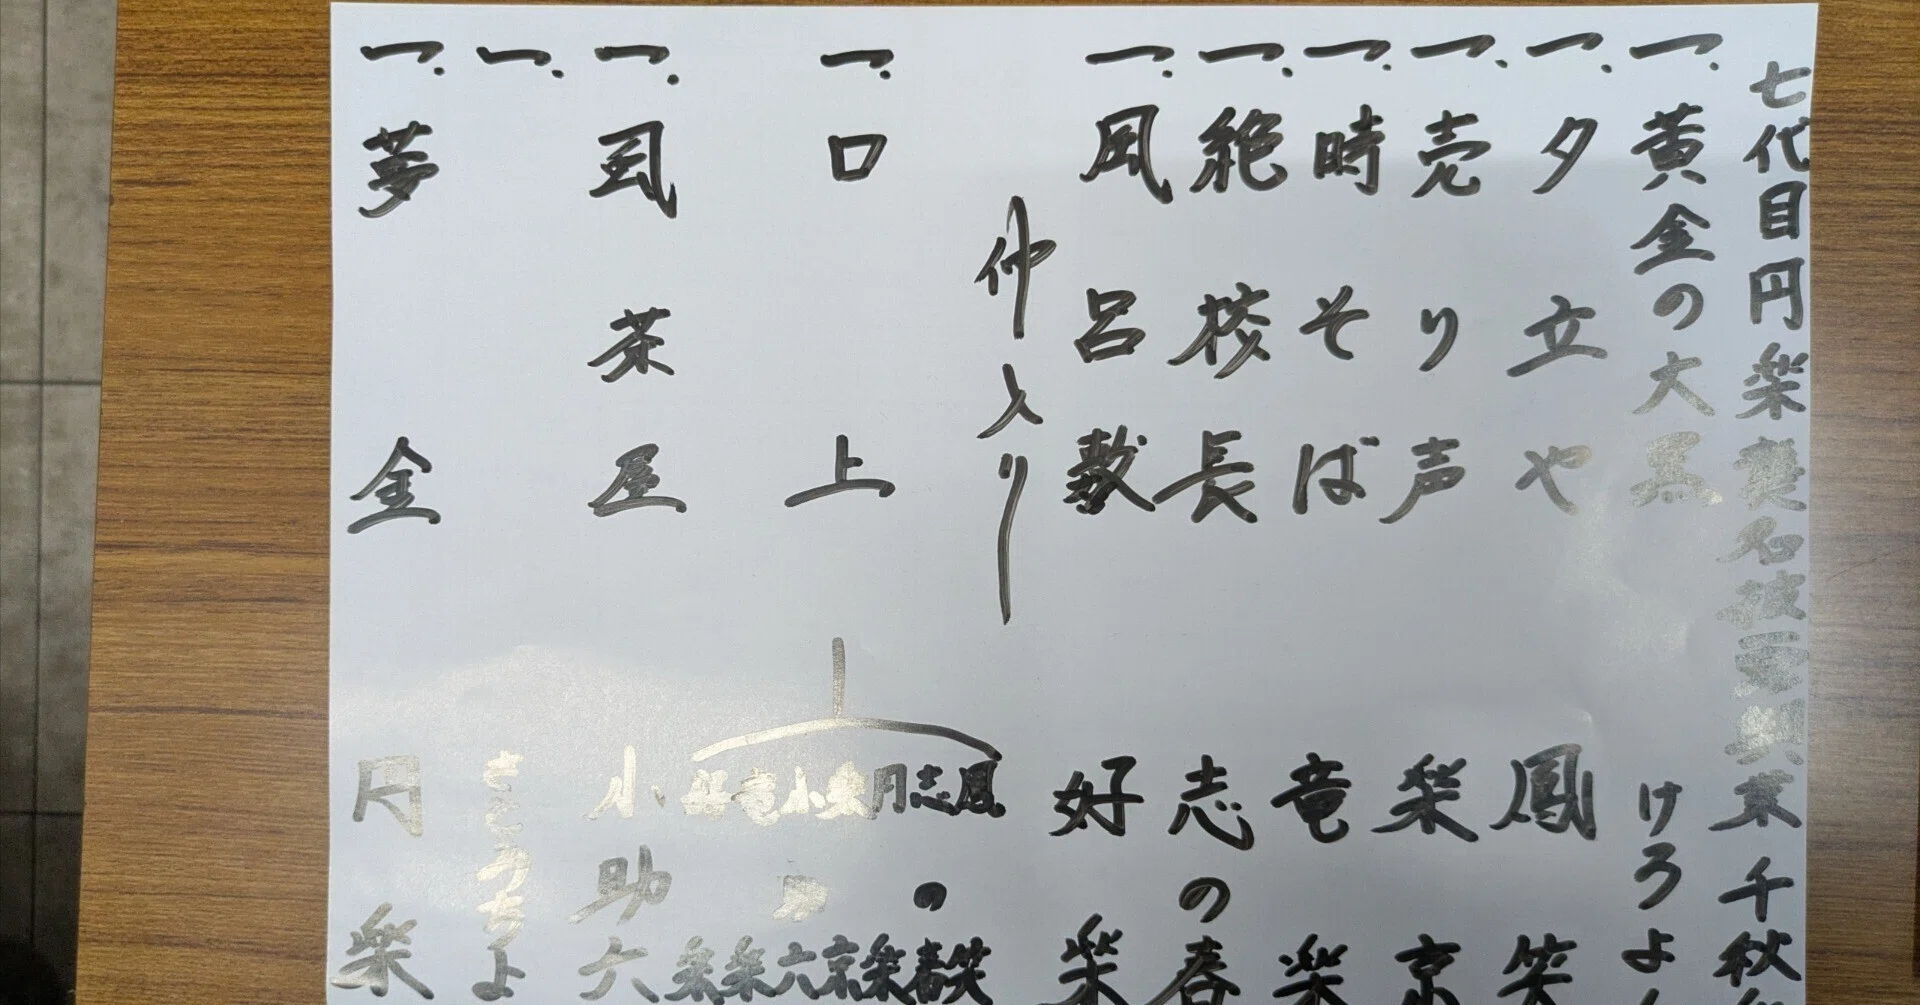 七代目円楽襲名披露興業千秋
一.黄金の大黒 けろよ
一.夕立や 鳳笑
一.売り声 楽京
一.時そば 竜楽
一.絶校長 志の春
一.風呂敷 好楽
仲入り
一.口上 鳳笑 志の春 円楽 楽京 小助六 竜楽 好楽
一.虱茶屋 小助六
一.
一.夢金 円楽